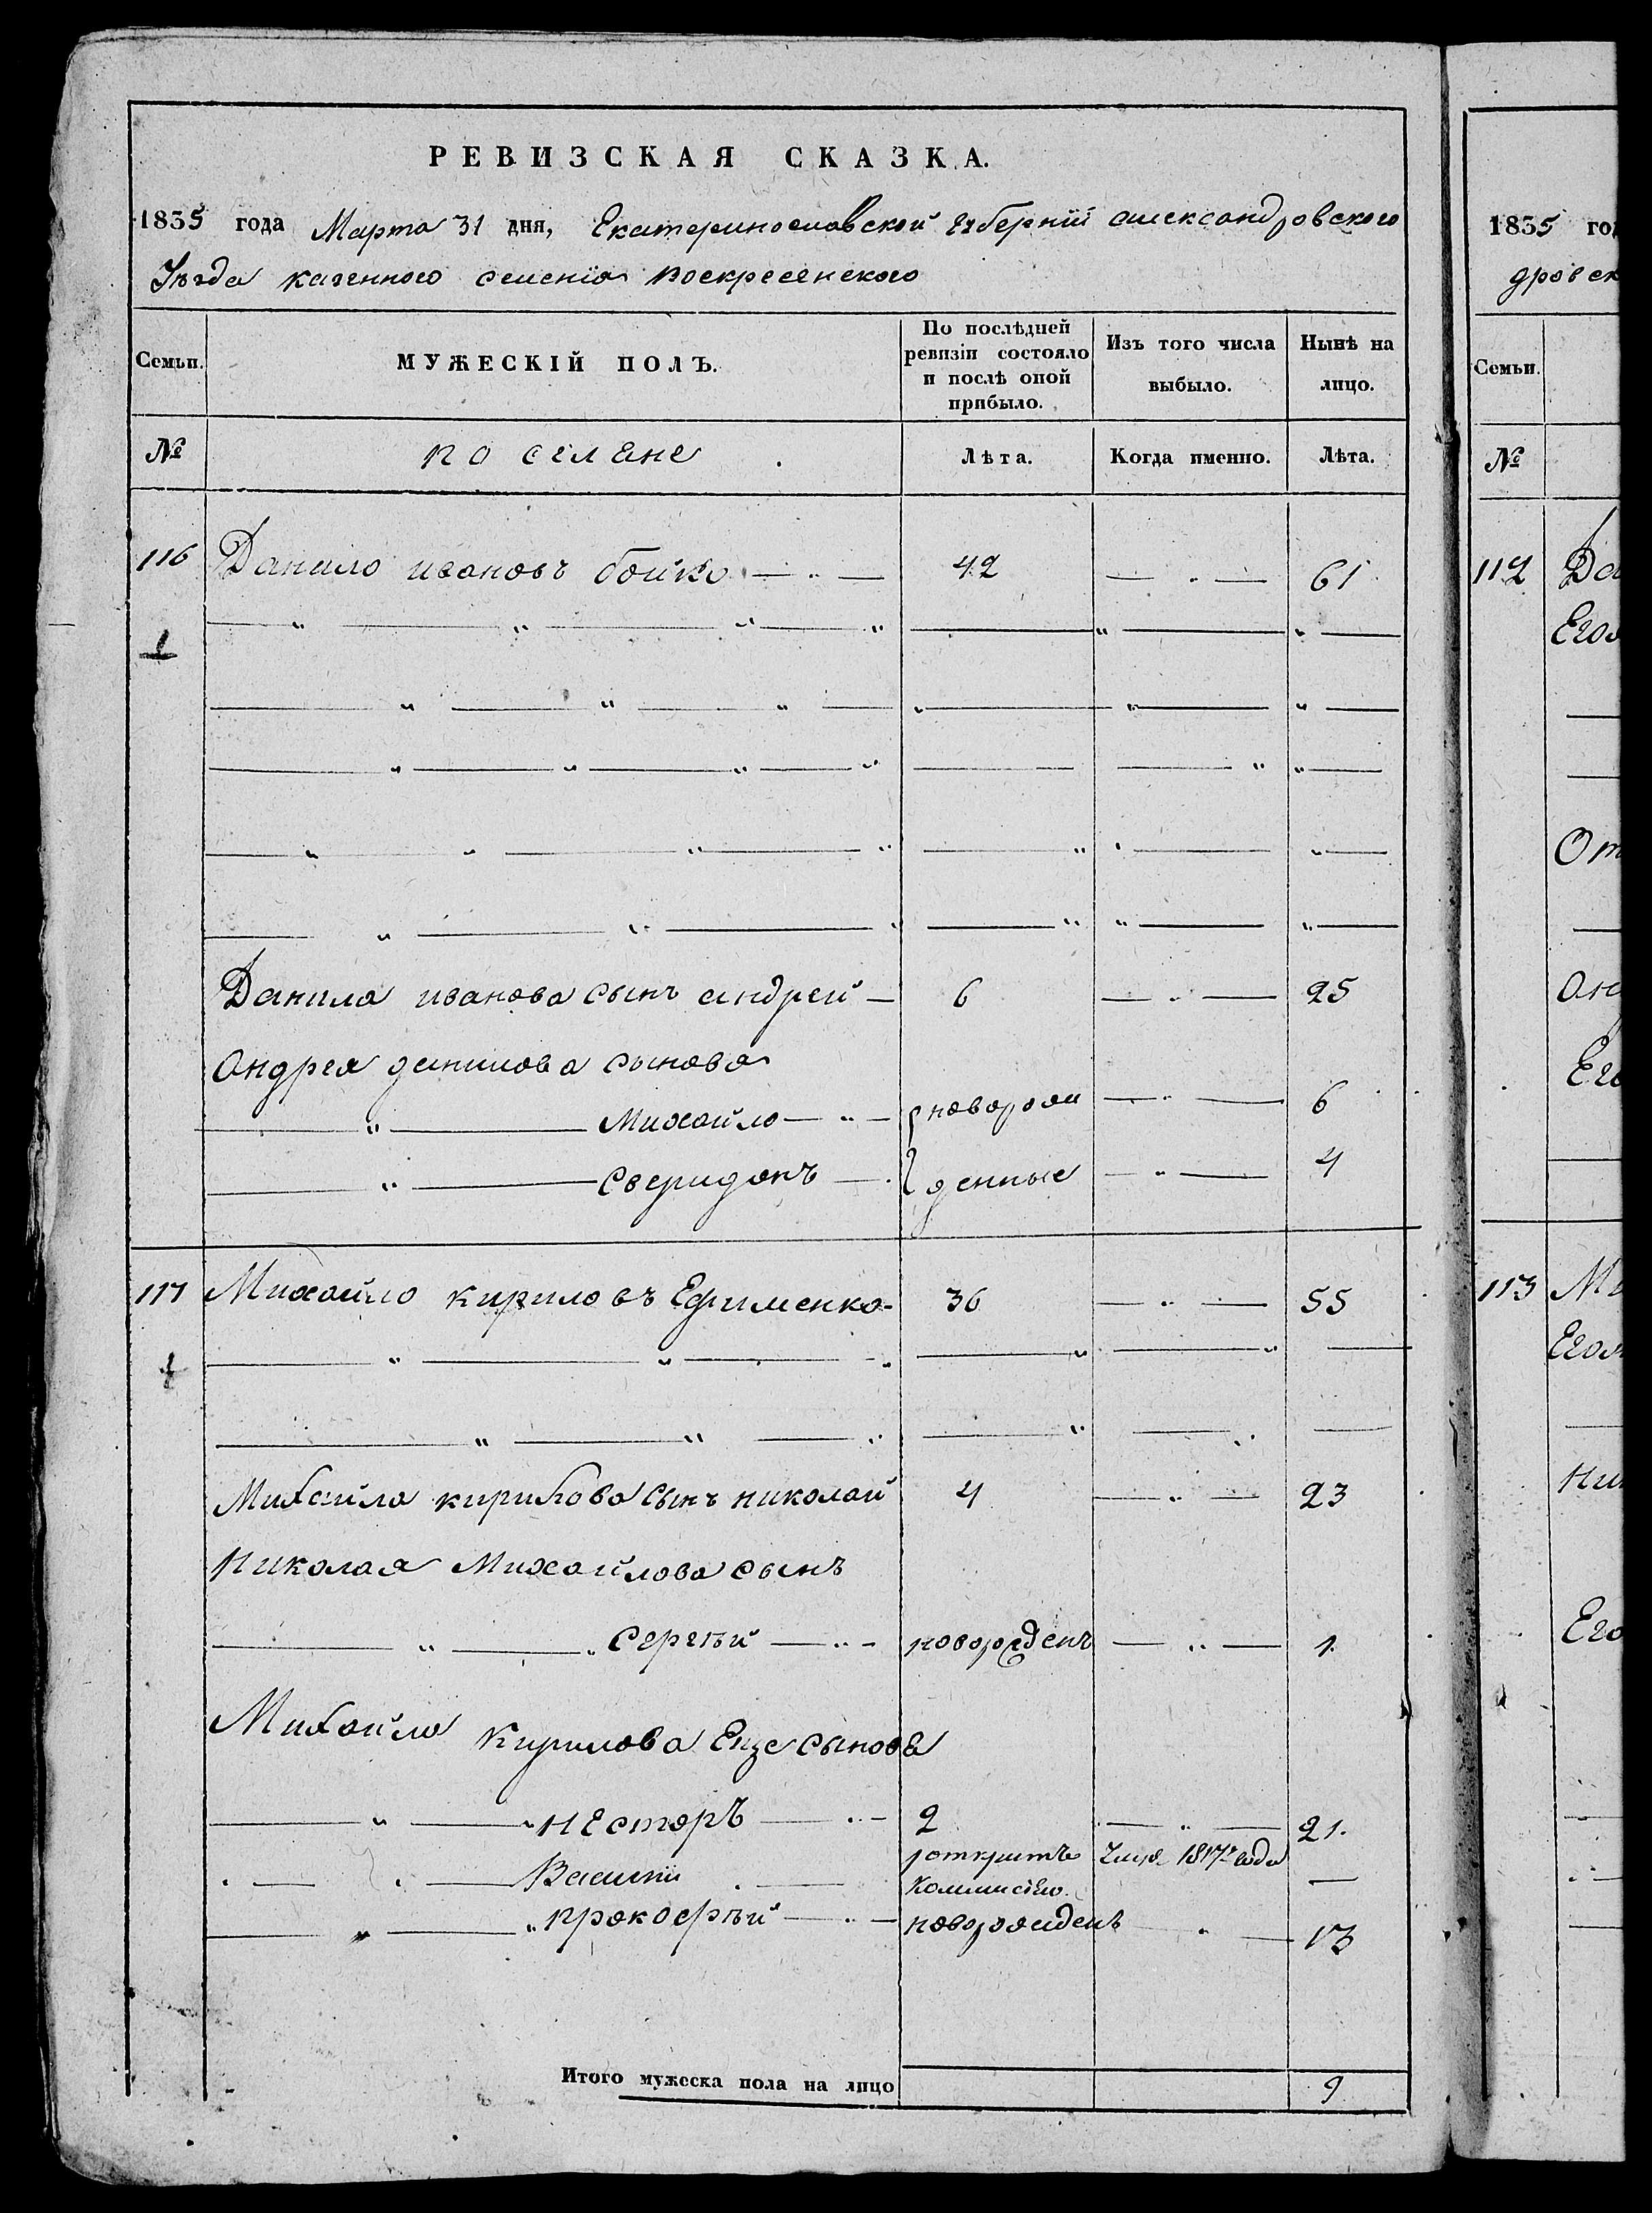 РЕВИЗСКАЯ СКАЗКА.
1835 года Марта 31 дня, Екатеринославской губерніи александровского
Уѣзда казенного селенія Воскресенского
Семьи.
МУЖЕСКІЙ ПОЛЪ.
По послѣдней ревизіи состояло и послѣ оной прибыло.
Изъ того числа выбыло.
Нынѣ на лицо.
№ поселяне Лѣта. Когда именно. Лѣта.
116 Данило ивановъ бойко 42 61
1
Данила иванова сынъ андрей 6 25
Андрея данилова сынова
Михайло новорож 6
Свиридонъ денные 4
117 Михайло кириловъ Ефименко 36 55
1
Михайла кирилова сынъ николай 4 23
Николая Михайлова сынъ
Сергѣй новорожденъ 1.
Михайла Кирилова Еще сынова
НЕсторЪ 2 21.
Василій 1817го года
Прокофѣй новорожденъ 13
Итого мужеска пола на лицо 9
1835 го
дровск
Семьи.
№
112 Да
Его
От
Ан
Его
113 Ми
Его
Ник
Его